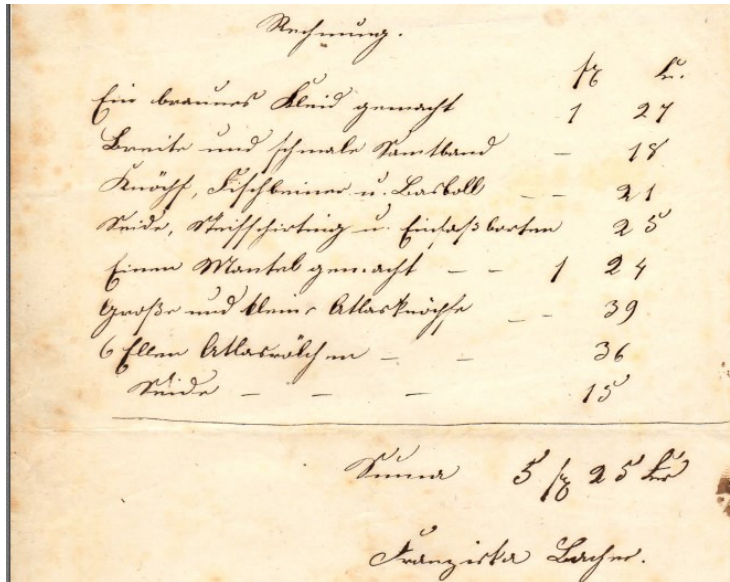 Rechnung.
fl kr.
Ein braunes Kleid gemacht 1 27
Breite und schmale Samtband – 18
Knöpfe, Fischbeiner u. – – 21
Seide, Steifschirting u. Einfaßborten 25
Einen Mantel gemacht – – 1 24
Große und kleine Atlasknöpfe – – 39
6 Ellen Atlasrölchen – – 36
Seide – – – 15
Suma 5 fl 25 kr
Franziska Bacher.